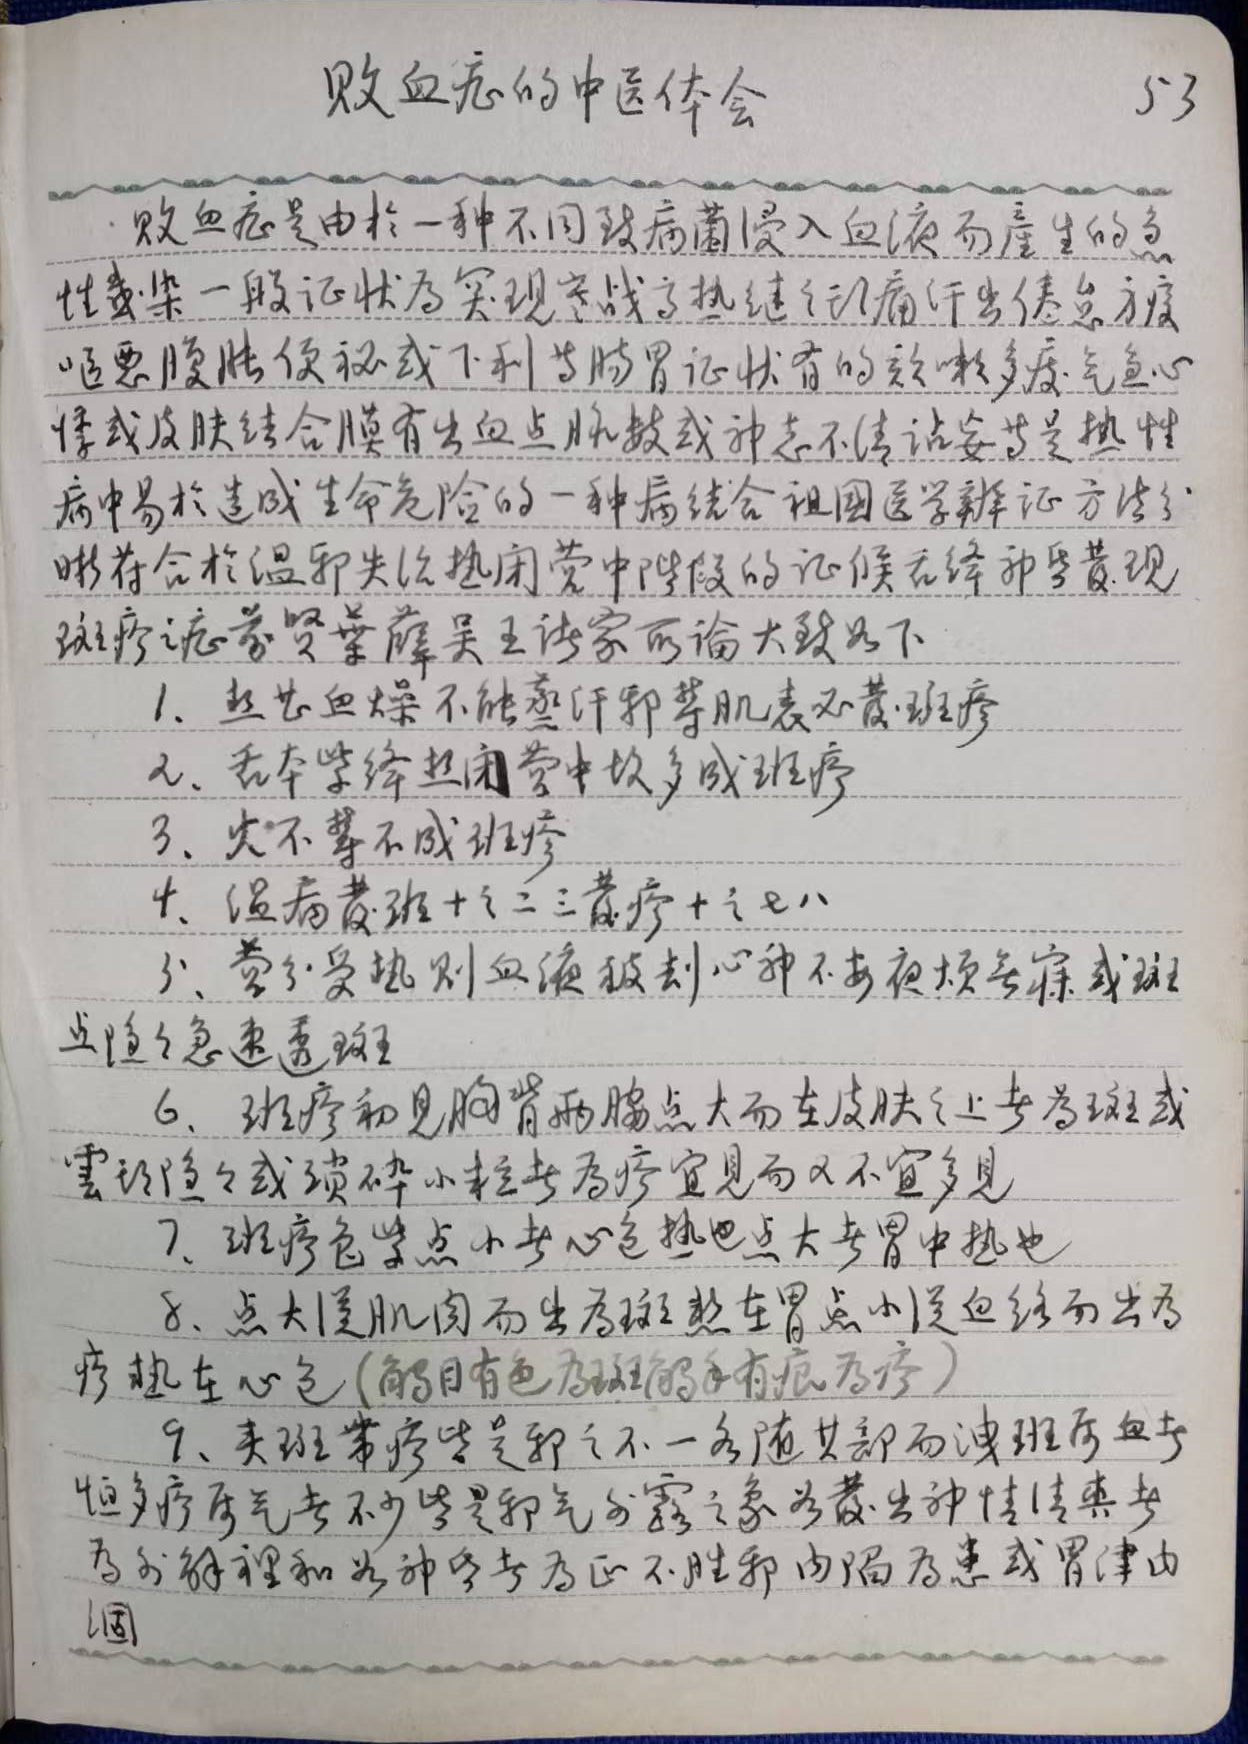 败血症的中医体会
53
败血症是由於一种不同致病菌侵入血液而產生的急
性感染一般证状為突现寒战高热继之头痛汗出倦怠力疲
呕恶腹胀便秘或下利等肠胃证状有的咳嗽多痰气急心
悸或皮肤结合膜有出血点脉数或神志不清谵妄等是热性
病中易於造成生命危险的一种病结合祖國医学辨证方法分
晰符合於温邪失治热闭营中階段的证候舌绛神昏發现
斑疹之症前贤葉薛吴王诸家所論大致如下
1、热甚血燥不能蒸汗邪鬱肌表必發斑疹
2、舌本紫绛热闭营中故多成斑疹
3、火不鬱不成斑疹
4、温病發斑十之二三發疹十之七八
5、营分受热则血液被劫心神不安夜烦無寐或斑
点隐々急速透斑
6、斑疹初见胸背两脇点大而在皮肤之上者為斑或
雲头隐々或琐碎小粒者為疹宜見而又不宜多見
7、斑疹色紫点小者心包热也点大者胃中热也
8、点大従肌肉而出為斑热在胃点小従血络而出為
疹热在心包(觸目有色為斑觸手有痕為疹)
9、夹斑带疹皆是邪之不一各随其部而洩斑属血者
恒多疹属气者不少皆是邪气外露之象发發出神情清爽者
為外解裡和如神昏者為正不胜邪内陷為患或胃津内
涸